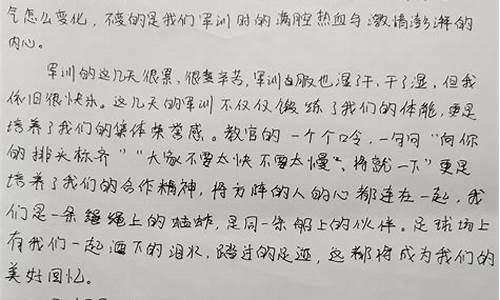 气怎么变化，不变的是我们军训时的满腔热血与激情澎湃的
内心。
军训的这几天很累，很辛苦，军训服也湿了干，干了湿，但我
依旧很快乐。这几天的军训不仅仅锻炼了我们的体能，更是
培养了我们的集体荣誉感。教官的一个个口令，一句句“向你
的排头标齐”“大家不要太快不要太慢”，将就一下”更是
培养了我们的合作精神，将方阵的人的心都连在一起，我
们是一条绳绳上的蚂蚱，是同一条船上的伙伴。足球场上
有我们一起洒下的泪水，踏过的足迹，这都将成为我们的
美好回忆。